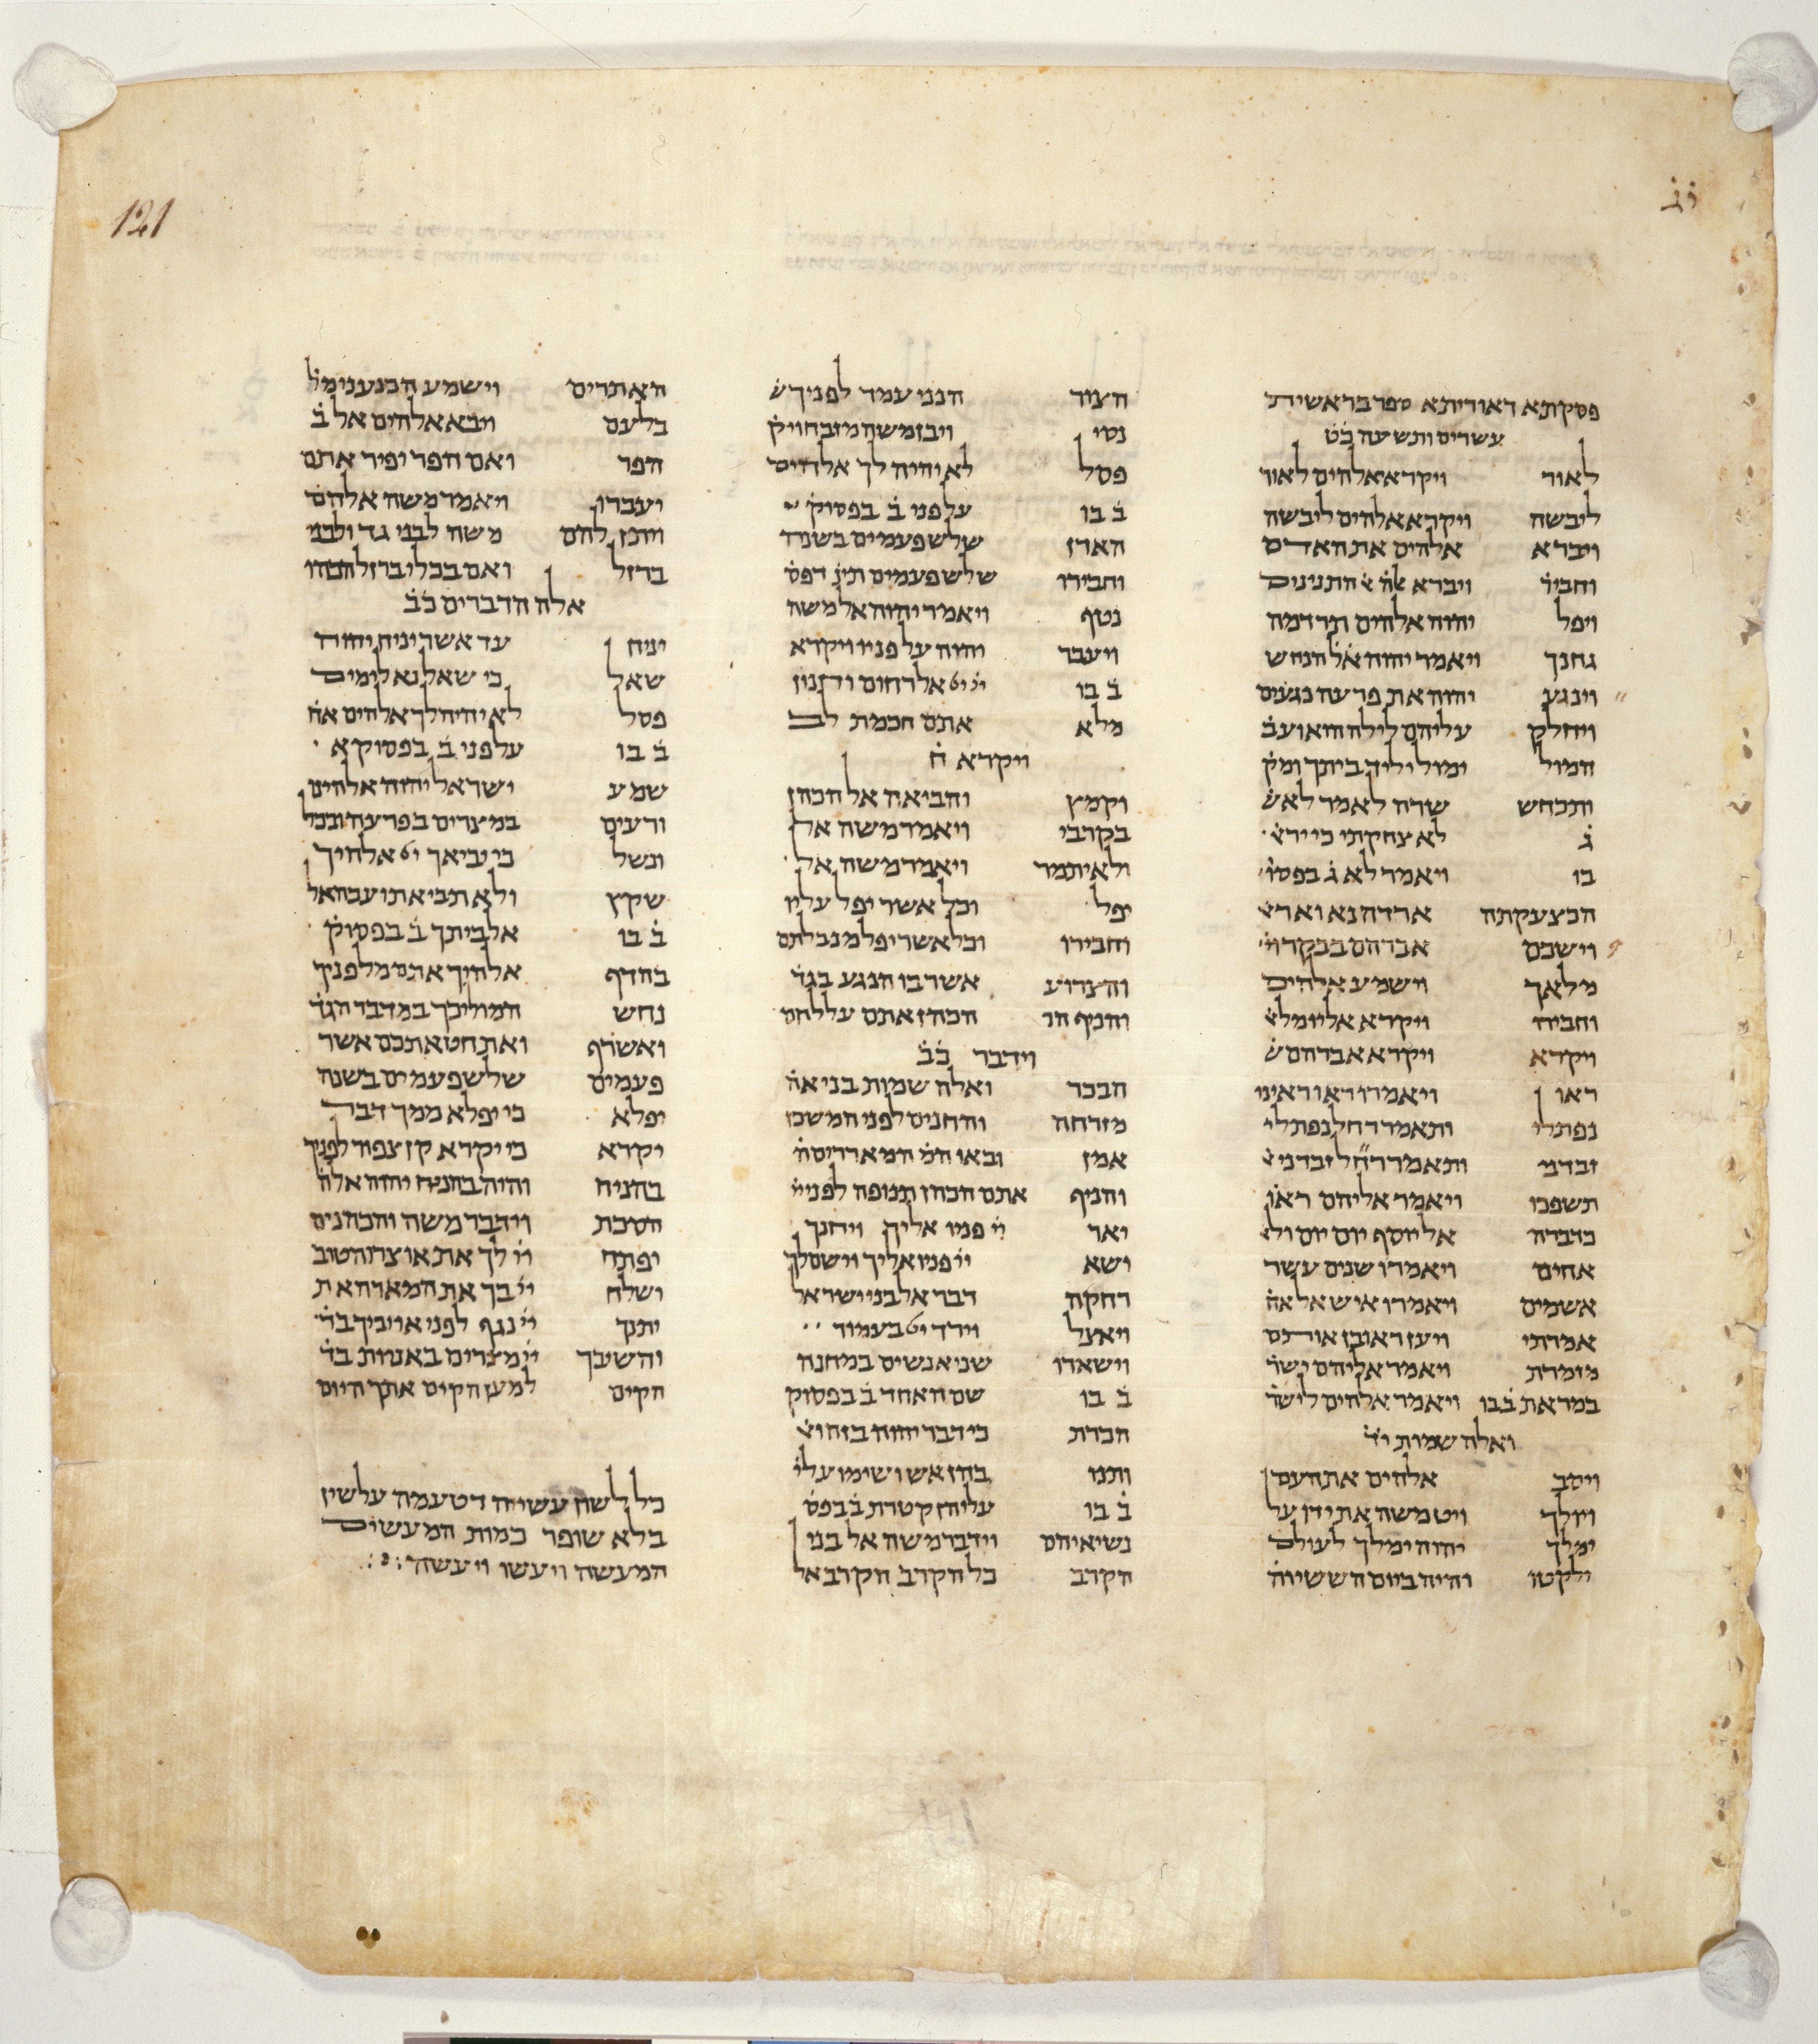 121
פסקתא דאוריתא ספר בראשית
עשרים ותשעה כ֗ט֗
לאור ויקרא אלהים לאור
ליבשה ויקרא אלהים ליבשה
ויברא אלהים את האדם
וחביר֗ ויברא התנינים
ויפל יהוה אלהים תרדמה
גחנך ויאמר יהוה אל֗ הנחש
וינגע יהוה את פרעה נגעים
ויחלק עליהם לילה הוא ועב֗
המול ימול יליד ביתך ומק֗
ותכחש שרה לאמר לא ש֗
ג֗ לא צחקתי כי יר֗א֗
בו ויאמר לא ג֗ בפסו֗
הכצעקתה ארדה נא וארא֗
וישכם אברהם בבקר וי֗
מלאך וישמע אלהים
וחביר֗ו ויקרא אליו מלא֗
ויקרא ויקרא אברהם ש֗
ראו ויאמרו ראו ראינו
נפתלי ותאמר רחל נפתלי
זבדני ותאמר זבדני א֗
תשפכו ויאמר אליהם ראו֗
כדברה אל יוסף יום יום ולא֗
אחים ויאמרו שנים עשר
אשמים ויאמרו איש אל אח֗
אמרתי ויען ראובן אותם
מזמרת ויאמר אליהם ישר֗
במראת ב֗ בו ויאמר אלהים לישר֗
ואלה שמות י֗ד֗
ויסב אלהים את העם
ויולך ויט משה את ידו על
ימלך יהוה ימלך לעולם
ילקטו והיה ביום הששי וה֗
הציר הנני עמד לפניך ש֗
נסי ויבן משה מזבח ויק֗
פסל לא יהיה לך אלהים
ב֗ בו על פני ב֗ בפסוק֗
האדן שלש פעמים בשנה
וחבירו שלש פעמים תינ֗ דפס֗
נטף ויאמר יהוה אל משה
ויעבר יהוה על פניו ויקרא
ב֗ בו אל רחום וחנון
מלא אתם חכמת לב
ויקרא ח֗
וקמץ והביאה אל הכהן
בקרבי ויאמר משה אל
ולאיתמר ויאמר משה אל
יפל וכל אשר יפל עליו
וחבירו וכל אשר יפל מנבלתם
והצרוע אשר בו הנגע בגד֗
והניף הכ הכהן אתם על לחם
וידבר כ֗ב֗
הבכר ואלה שמות בני אה֗
מזרחה והחנים לפני המשכן
אמן ובאו המ֗ המאררים ה֗
והניף אתם הכהן תנופה לפני יי֗
יאר יי֗ פניו אליך ויחנך
ישא יי֗ פניו אליך וישם לך
רחקה דבר אל בני ישראל
ויאצל וירד בעמוד
וישארו שני אנשים במחנה
ב֗ בו שם האחד ב֗ בפסוק
הכרת כי דבר יהוה בזה וא֗
ותנו בהן אש ושימו עלי֗
ב֗ בו עליהן קטרת ב֗ בפס֗
נשיאיהם וידבר משה אל בני
הקרב כל הקרב הקרב אל
האתרים וישמע הכנעני מל֗
בלעם ויבא אלהים אל ב֗
הפר ואם הפר יפיר אתם
יעברו ויאמר משה אלהם֗
ויתן להם משה לבני גד ולבני
ברזל ואם בכלי ברזל הכהו
אלה הדברים כ֗ב֗
יניח עד אשר יניח יהוה
שאל כי שאל נא לימים
פסל לא יהיה לך אלהים אח֗
ב֗ בו על פני ב֗ בפסוק א֗
שמע ישראל יהוה אלהינו
ורעים במצרים בפרעה ובכל
ונשל כי יביאך אלהיך
שקץ ולא תביא תועבה אל
ב֗ בו אל ביתך ב֗ בפסוק֗
בהדף אלהיך אתם מלפניך
נחש המוליכך במדבר הגד֗
ואשרף ואת חטאתכם אשר
פעמים שלש פעמים בשנה
יפלא כי יפלא ממך דבר
יקרא כי יקרא קן צפור לפניך
בהניח והיה בהניח יהוה אלה֗
הסכת וידבר משה והכהנים
יפתח יי֗ לך את אוצרו הטוב
ישלח יי֗ בך את המארה את
יתנך יי֗ נגף לפני אויביך בד֗
והשיבך יי֗ מצרים באניות בד֗
הקים למען הקים אתך היום
כל לשון עשייה דטעמה על שין
בלא שופר כמות המעשים
המעשה ויעשו ויעשה